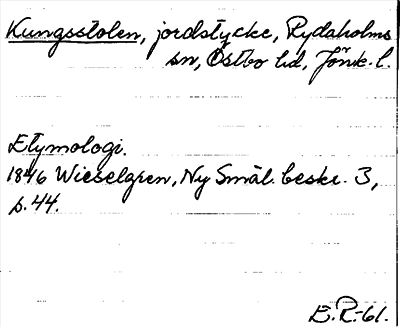 Kungsstolen, jordstycke, Rydaholms
sn, Östbo hd, Jönk. l.
Etymologi.
1846 Wieselgren, Ny Smål. beskr. 3,
s. 44.
E.R-61.